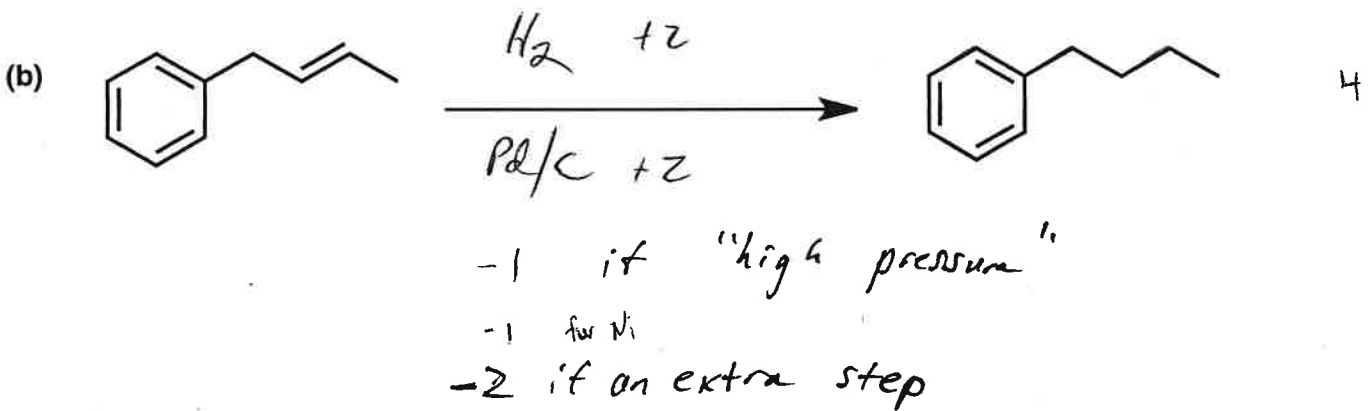 (b)
H₂ +2
4
Pd/C +2
-1 if "high pressure"
-1 for Ni
-2 if an extra step